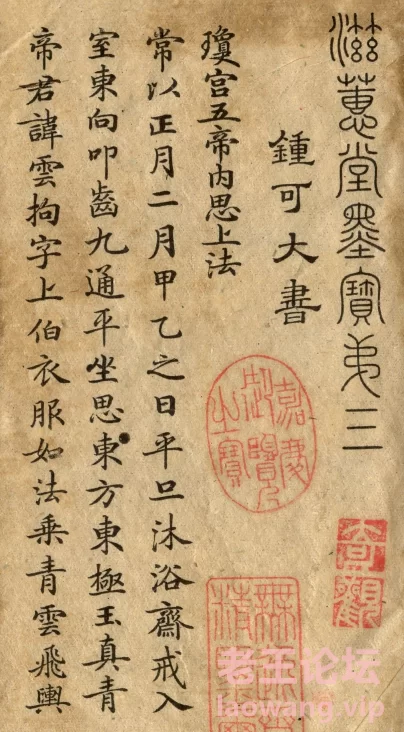 滋蕙堂墨寶第三
鍾可大書
瓊宮五帝内思上法
常以正月二月甲乙之日平旦沐浴齋戒入
室東向叩齒九通平坐思東方東極玉真青
帝君諱雲拘字上伯衣服如法乘青雲飛輿
嘉慶御覽之寶
奇觀
老王论坛
laowang.vip